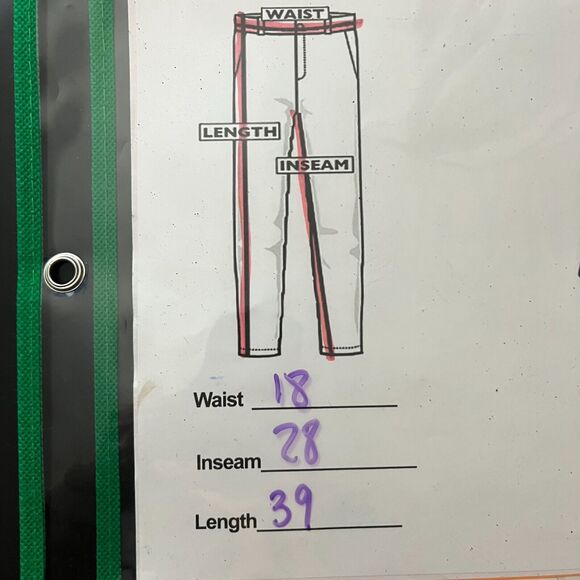 WAIST
LENGTH
INSEAM
Waist 18
Inseam 28
Length 39